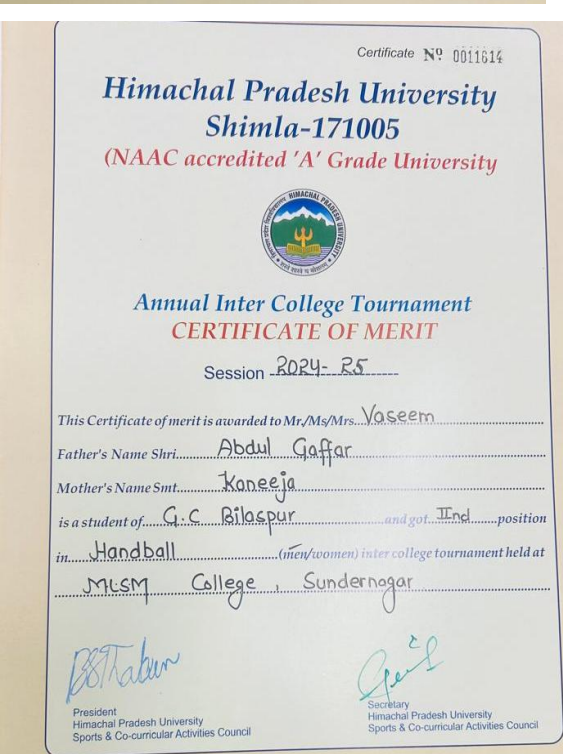 Certificate Nº 0011614
Himachal Pradesh University
Shimla-171005
(NAAC accredited 'A' Grade University
HIMACHAL PRADESH UNIVERSITY
Annual Inter College Tournament
CERTIFICATE OF MERIT
Session 2024-25
This Certificate of merit is awarded to Mr./Ms/Mrs. Vaseem
Father's Name Shri Abdul Gaffar
Mother's Name Smt. Kaneeja
is a student of G.C Bilaspur and got IInd position
in Handball (men/women) inter college tournament held at
MLSM College, Sundernagar
President
Himachal Pradesh University
Sports & Co-curricular Activities Council
Secretary
Himachal Pradesh University
Sports & Co-curricular Activities Council